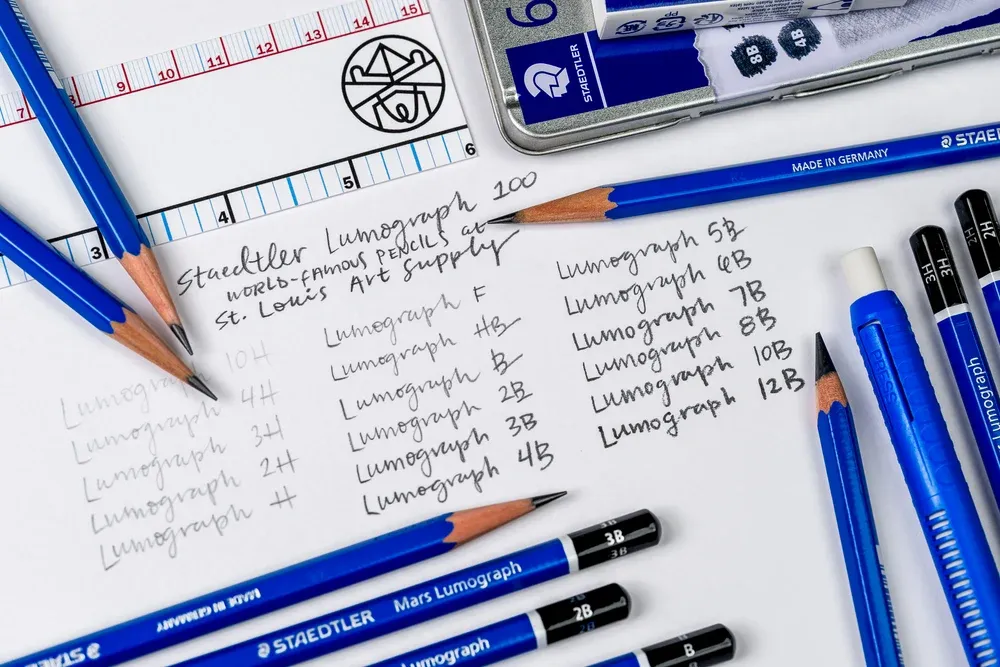 7 8 9 10 11 12 13 14 15
3 4 5 6
6
STAEDTLER
8B 4B
MADE IN GERMANY STAED
Staedtler Lumograph 100
WORLD-FAMOUS PENCILS at
St. Louis Art Supply
Lumograph 10H
Lumograph 4H
Lumograph 3H
Lumograph 2H
Lumograph H
Lumograph F
Lumograph HB
Lumograph B
Lumograph 2B
Lumograph 3B
Lumograph 4B
Lumograph 5B
Lumograph 6B
Lumograph 7B
Lumograph 8B
Lumograph 10B
Lumograph 12B
2H 2H
3H 3H
Lumograph
MADE IN GERMANY
STAEDTLER Mars Lumograph 3B 3B 3B
Lumograph 2B 2B
B